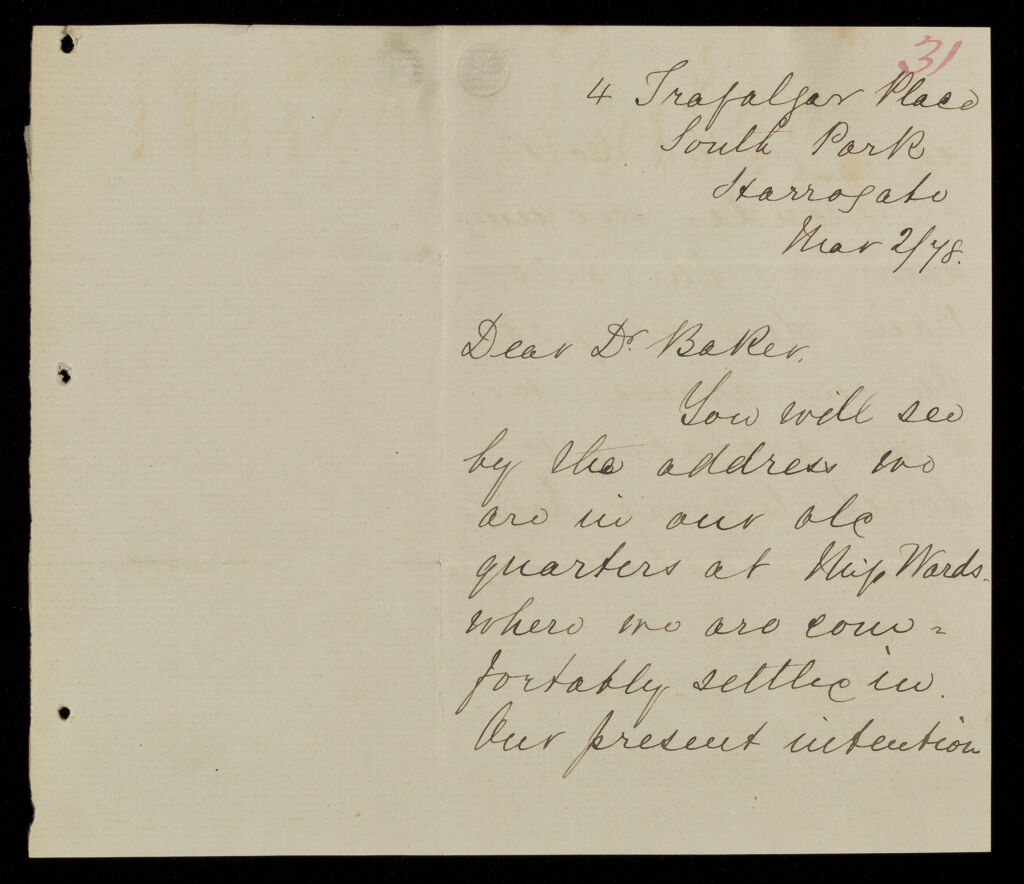 31
4 Trafalgar Place
South Park
Harrogate
Mar 2/78.
Dear Dr Baker,
You will see
by the address we
are in our old
quarters at Miss Wards
where we are com=
fortably settled in.
Our present intention